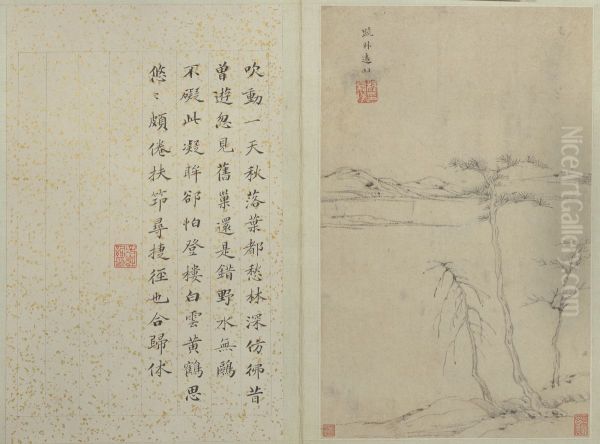 林遠
吹動一天秋落葉都愁林深仿彿昔
曾遊忽見舊巢還是錯野水無鷗
不礙此凝眸郤怕登樓白雲黃鶴思
悠〻頗倦扶筇尋捷徑也合歸休
NiceArtGallery.com